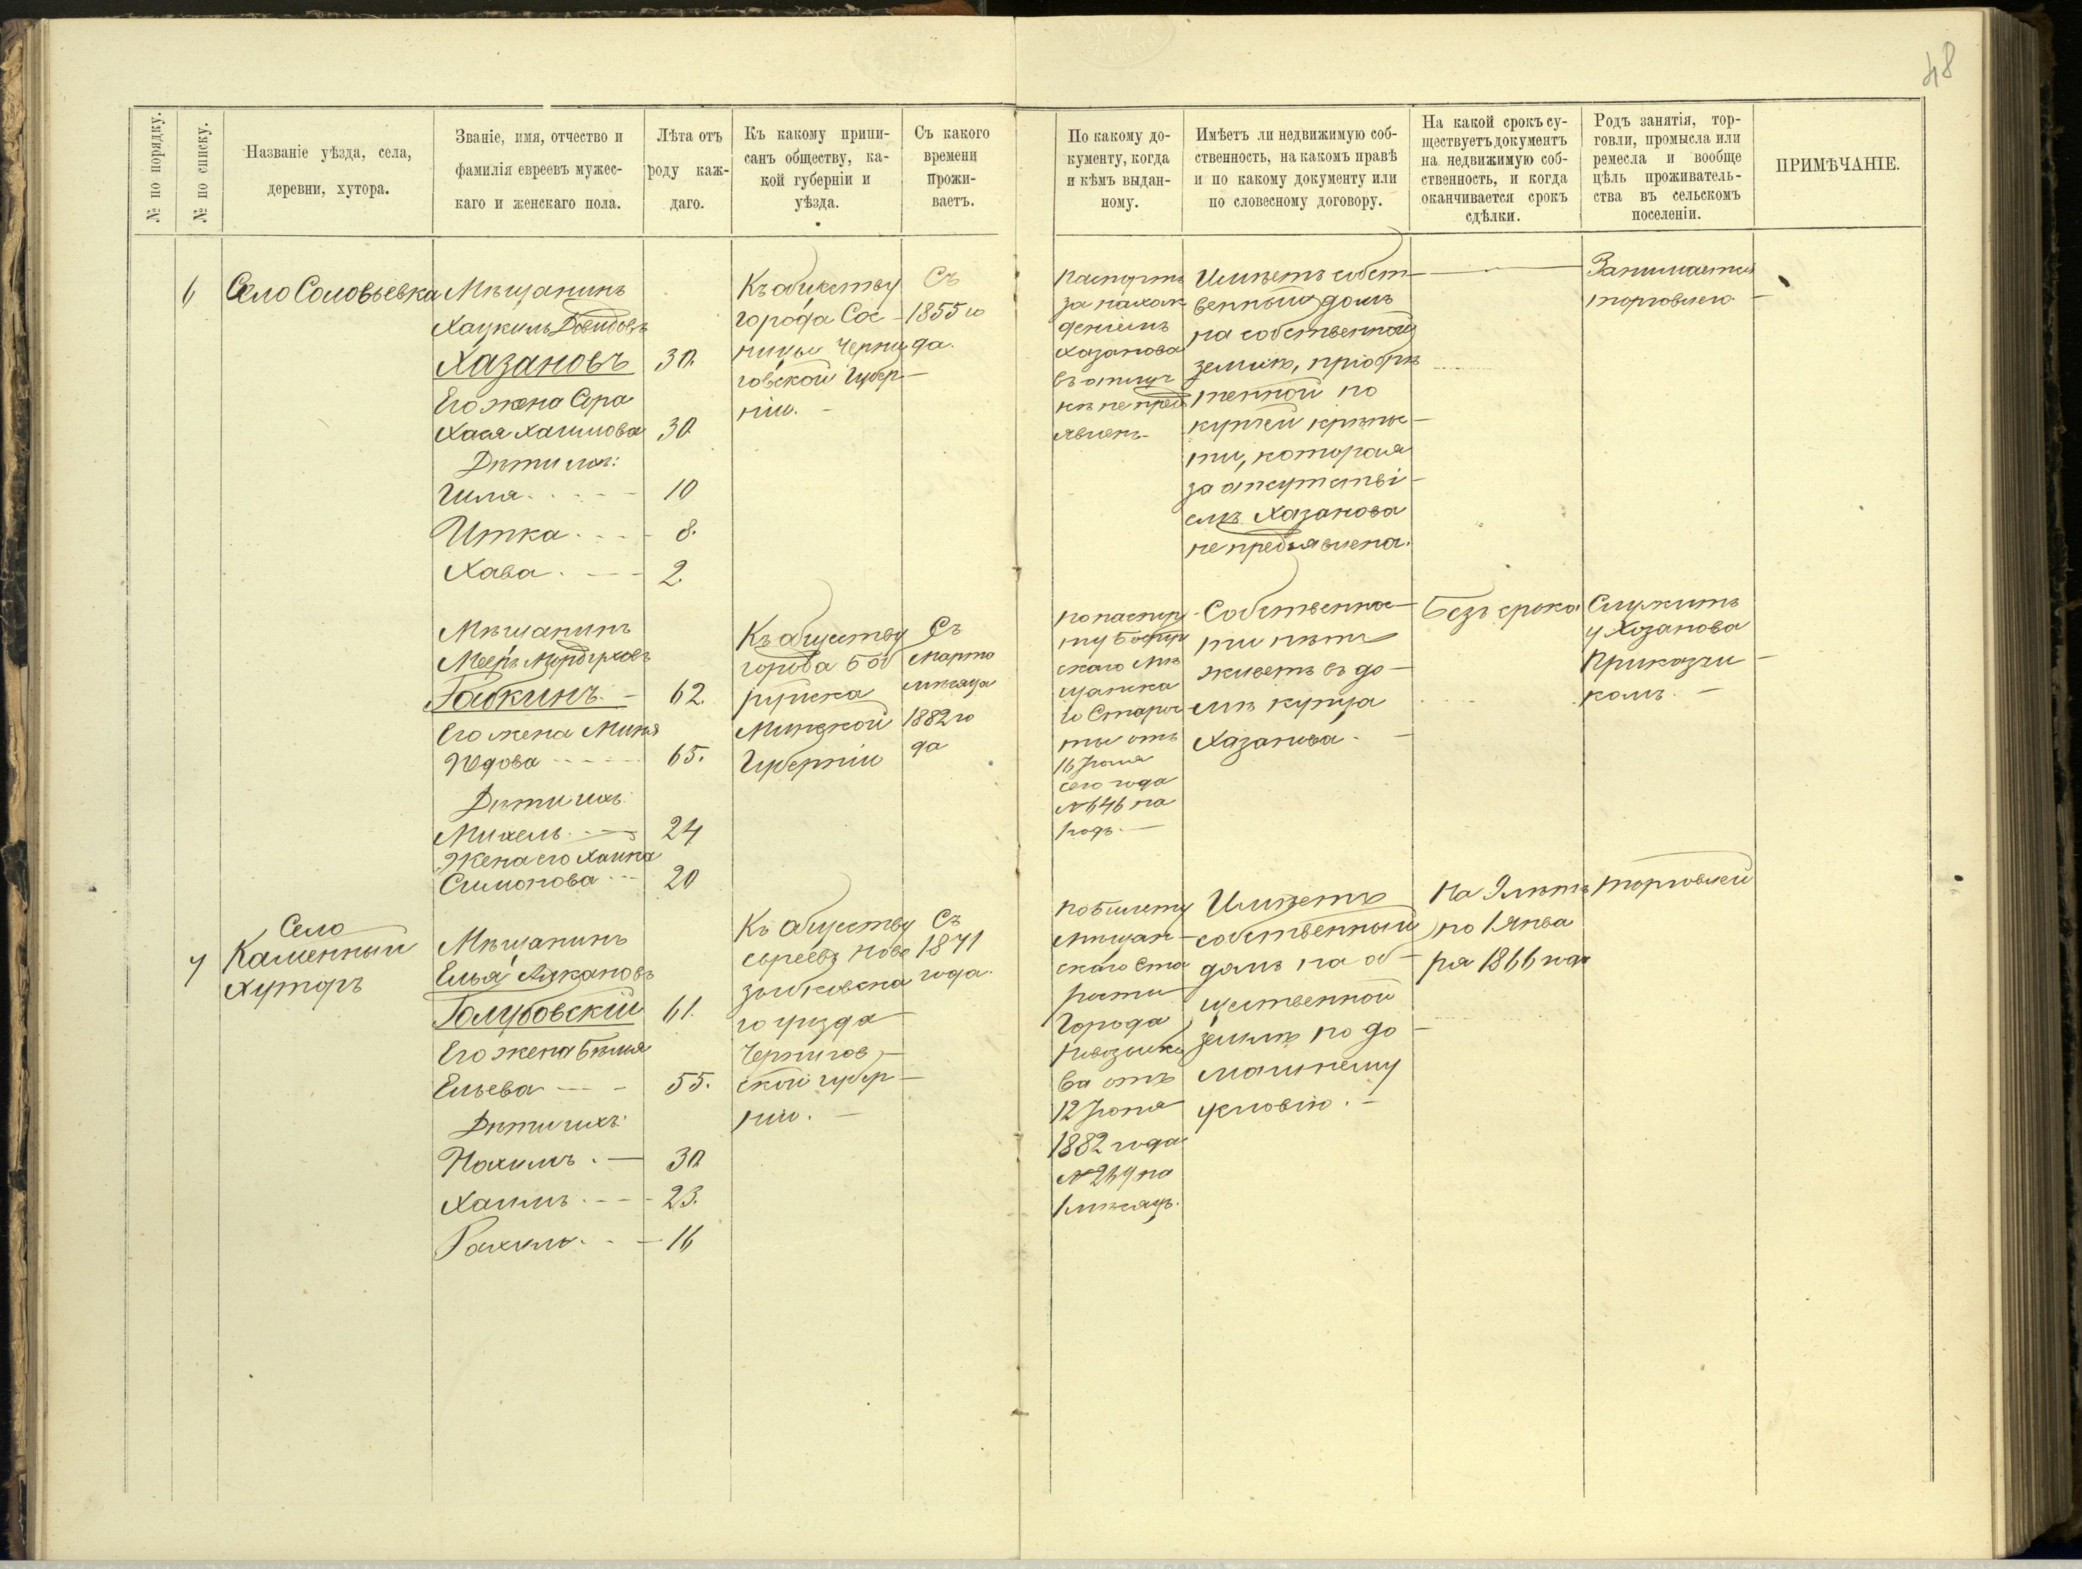 48
№ по порядку.
№ по списку.
Названіе уѣзда, села,
деревни, хутора.
Званіе, имя, отчество и
фамилія евреевъ мужес-
каго и женскаго пола.
Лѣта отъ
роду каж-
даго.
Къ какому припи-
санъ обществу, ка-
кой губерніи и
уѣзда.
Съ какого
времени
прожи-
ваетъ.
По какому до-
кументу, когда
и кѣмъ выдан-
ному.
Имѣетъ ли недвижимую соб-
ственность, на какомъ правѣ
и по какому документу или
по словесному договору.
На какой срокъ су-
ществуетъ документъ
на недвижимую соб-
ственность, и когда
оканчивается срокъ
сдѣлки.
Родъ занятія, тор-
говли, промысла или
ремесла и вообще
цѣль проживатель-
ства въ сельскомъ
поселеніи.
ПРИМѢЧАНІЕ.
6
Село Соловьевка
Мѣщанинъ
Хацкель Довидовъ
Хазановъ 30.
Его жена Сора
Хася Хаимова 30
Дѣти ихъ:
Шля 10
Итка 8.
Хава 2.
Къ обществу
города Сос-
ницы Черни
говской Губер-
ніи.
Съ
1855 го
да.
Паспортъ
за нахож
деніемъ
Хазанова
въ отлуч
кѣ не пред
явленъ
Имѣетъ собст-
венный домъ
на собственной
землѣ, пріобрѣ
тенной по
купчей крѣпос-
ти, которая
за отсутстві-
емъ Хазанова
не предъявлена.
Занимается
торговлею
Мѣщанинъ
Мееръ Мордуховъ
Бабкинъ 62.
Его жена Миня
Юдова 65.
Дѣти ихъ:
Михель 24
Жена его Хаина
Симонова 20
Къ обществу
города Боб
руйска
Минской
Губерніи
Съ
Марта
мѣсяца
1882 го
да
по паспор
ту Бобруй
скаго Мѣ
щанска
го Старос
ты отъ
16 Іюня
сего года
№ 646 на
годъ.
Собственнос-
ти нѣтъ
живетъ въ до-
мѣ купца
Хазанова.
Безъ срока
Служитъ
у Хозанова
Приказчи
комъ.
7
Село
Каменный
Хуторъ
Мѣщанинъ
Елья
Голубовскій 61.
Его жена Бейля
Ельева 55.
Дѣти ихъ:
Нохимъ 30
Хаимъ 23.
Рахиль 16
Къ обществу
евреевъ Ново
зыбковска
го уѣзда
Чернигов-
ской губер-
ніи.
Съ
1871
года.
по билету
Мѣщан-
скаго Ста
росты
Города
Новозыбко
ва отъ
12 Іюня
1882 года
№ 267 на
1 мѣсяцъ.
Имѣетъ
собственный
домъ на об-
щественной
землѣ по до-
машнему
условію.
На 9 лѣтъ
по 1 Янва
ря 1866 года
торговлей